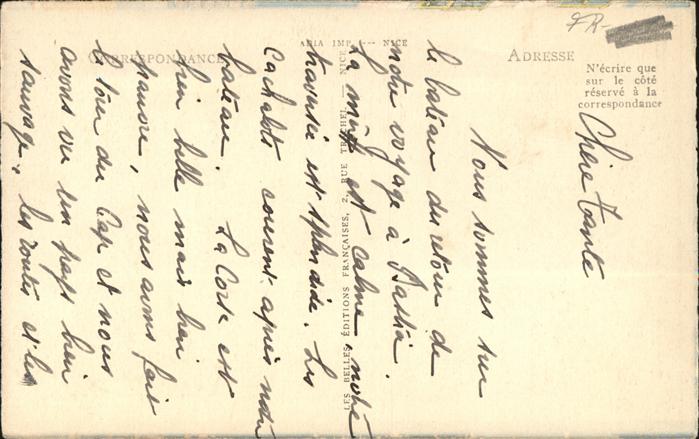 FR-
ADIA IMP. --- NICE
CORRESPONDANCE
ADRESSE
N'écrire que
sur le côté
réservé à la
correspondance
LES BELLES ÉDITIONS FRANÇAISES, 2, RUE TRACHEL — NICE
Chère tante
Nous sommes sur
le bateau du retour de
notre voyage à Bastia.
La mer est calme, notre
traversée est splendide. Les
Cachalots courent après notre
bateau. La Corse est
bien belle mais bien
pauvre, nous avons fait
le tour du Cap et nous
avons vu un pays bien
sauvage, les routes et les